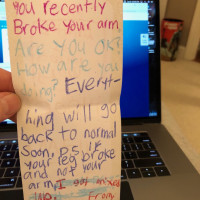 you recently
Broke your arm,
Are you OK?
How are you
doing? Everyt-
hing will go
back to normal
soon, P.S. if
your leg broke
and not your
arm, I got mixed
up. From